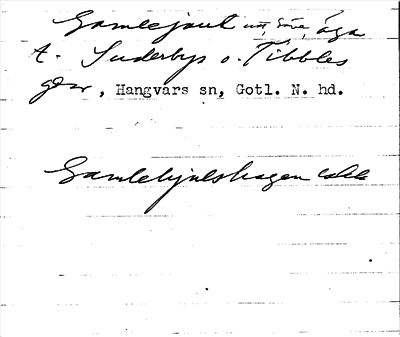 Gamlejaul
t. Suderbys o. Tibbles
gdar, Hangvars sn, Gotl. N. hd.
Gamlehjulshagen